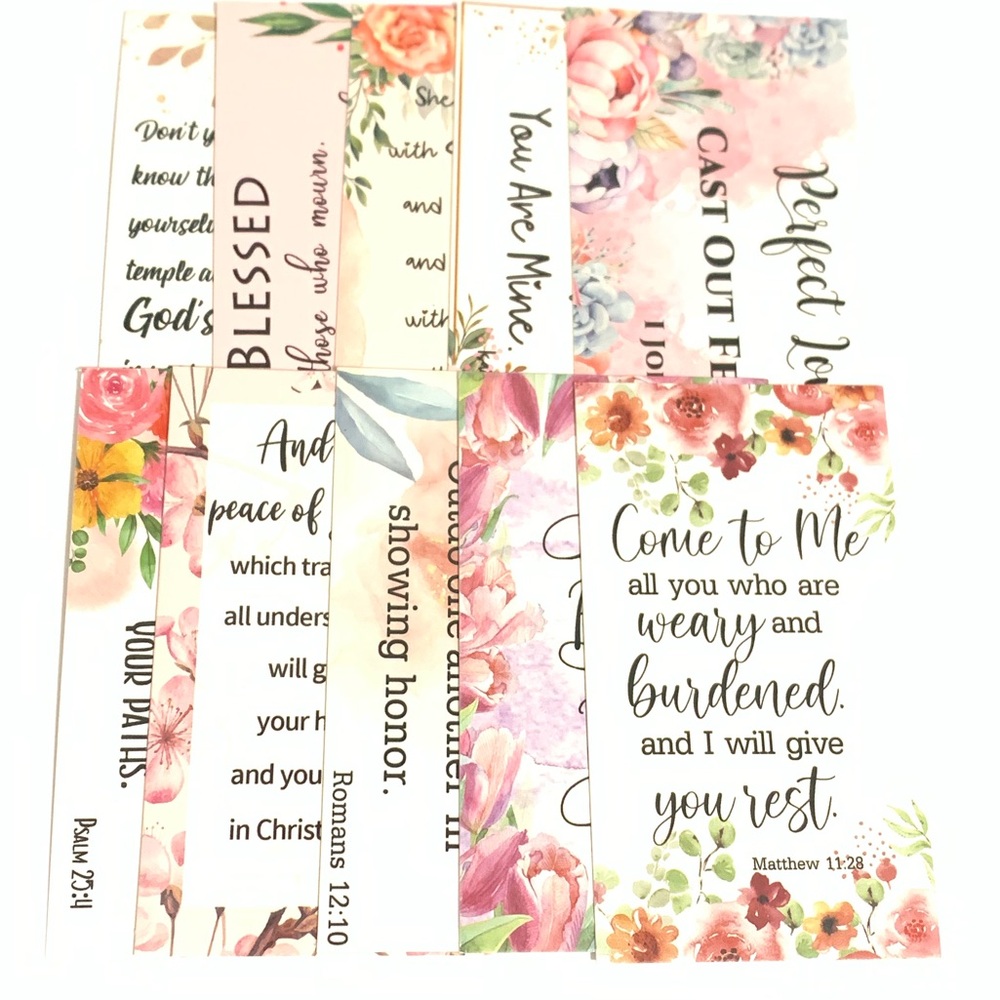 Don't y
know th
yourselv
temple a
God's
BLESSED
those who mourn.
She
with
and
and
with
You Are Mine.
Perfect Lov
CAST OUT FE
I Jo
YOUR PATHS.
PSALM 25:4
And
peace of
which tra
all unders
will g
your h
and you
in Christ
Outdo one another in
showing honor.
Romans 12:10
Come to Me
all you who are
weary and
burdened.
and I will give
you rest.
Matthew 11:28